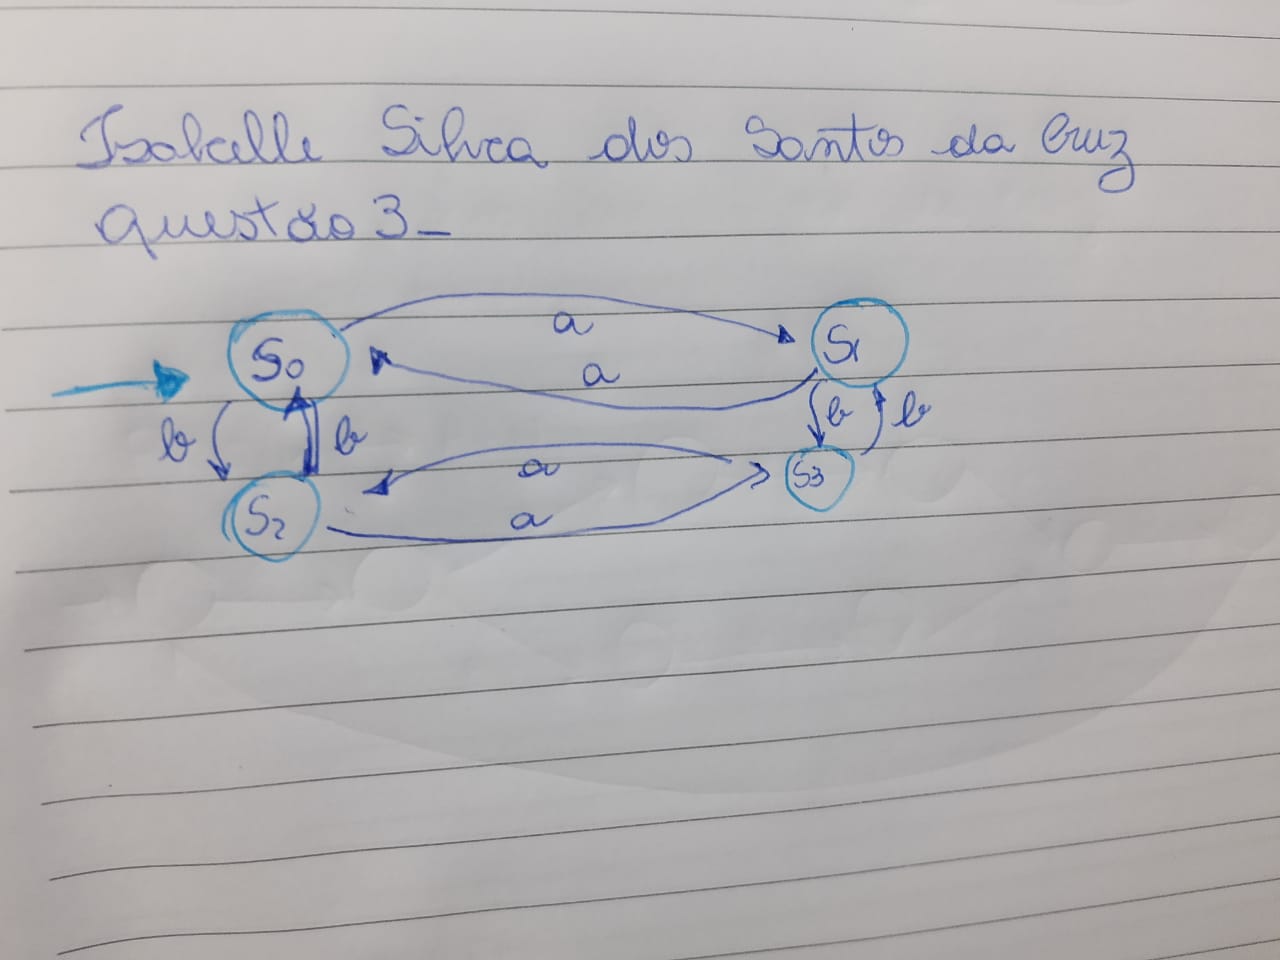 Isabelle Silva dos Santos da Cruz
questão 3-
a
S0 S1
a
b b b b
a S3
S2 a